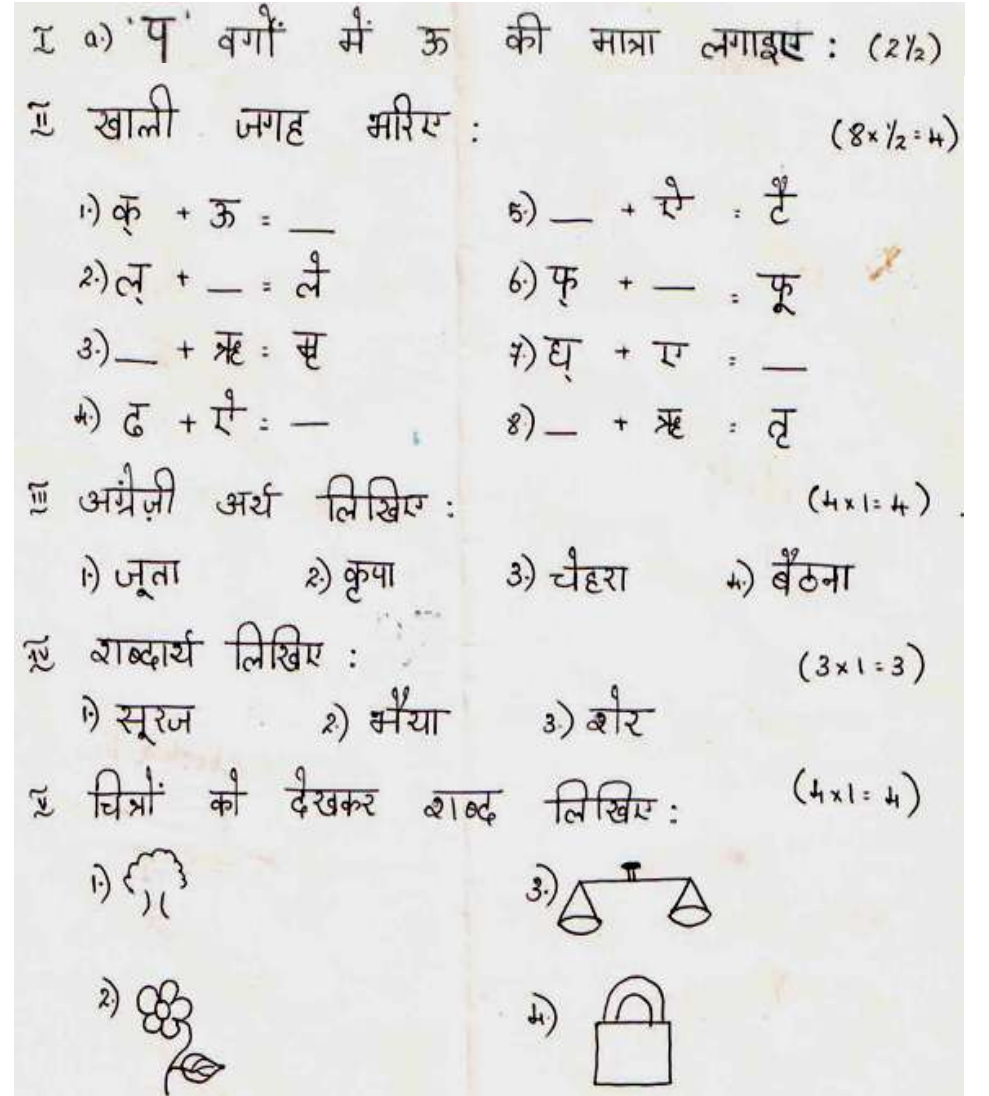 I a.) 'प' वर्गों में ऊ की मात्रा लगाइए : (2½)
II खाली जगह भरिए : (8×½=4)
1.) क् + ऊ = __ 5.) __ + ऐ = टै
2.) ल् + __ = ले 6.) फ् + __ = फू
3.) __ + ऋ = 7.) घ् + ए = __
4.) ढ + ऐ = __ 8.) __ + ऋ = तृ
III अंग्रेज़ी अर्थ लिखिए : (4×1=4)
1.) जूता 2.) कृपा 3.) चेहरा 4.) बैठना
IV शब्दार्थ लिखिए : (3×1=3)
1.) सूरज 2.) भैया 3.) शेर
V चित्रों को देखकर शब्द लिखिए : (4×1=4)
1.) 3.)
2.) 4.)